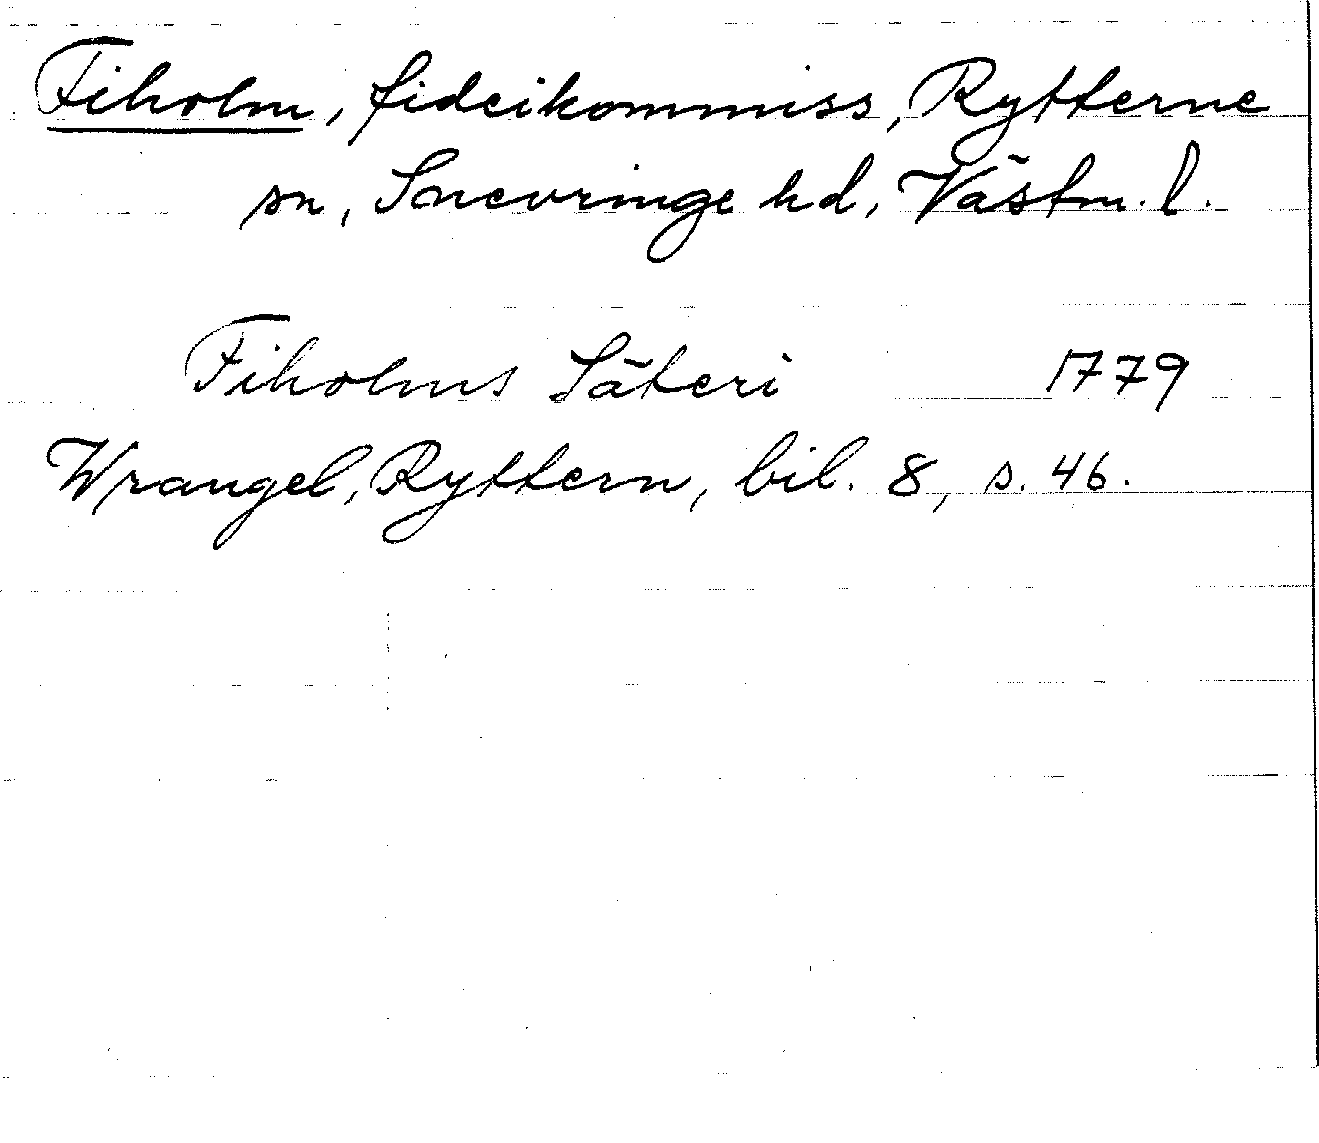 Fiholm, fideikommiss, Rytterne
sn, Snevringe hd, Västm. l.
Fiholms Säteri 1779
Wrangel, Ryttern, bil. 8, s. 46.